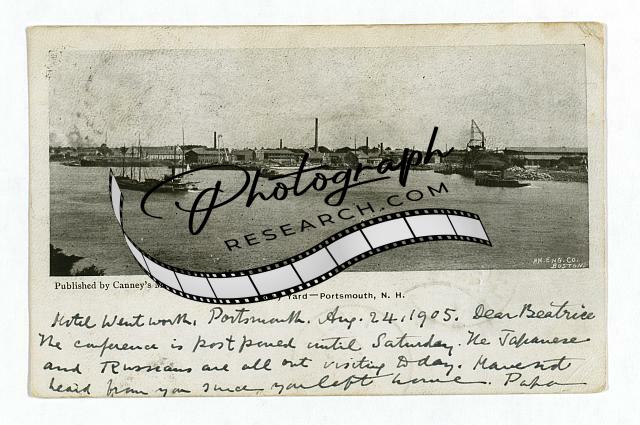 Photograph
RESEARCH.COM
AM. ENG. CO.
BOSTON.
Published by Canney's M
Yard—Portsmouth, N. H.
Hotel Wentworth, Portsmouth. Aug. 24, 1905. Dear Beatrice
The conference is postponed until Saturday. The Japanese
and Russians are all out visiting today. Haven't
heard from you since you left home. Papa